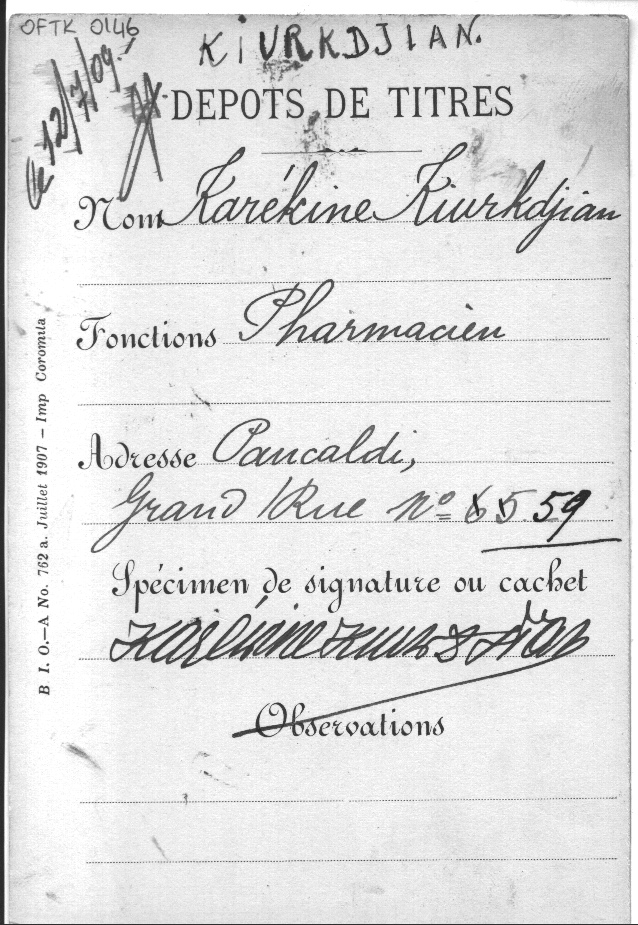 OFTK 0146
KIURKDJIAN.
Le 12/7/09.
DEPOTS DE TITRES
Nom Karékine Kiurkdjian
Fonctions Pharmacien
Adresse Pancaldi,
Grand Rue Nº 65 59
Spécimen de signature ou cachet
Karékine Kiurkdjian
Observations
B I. O.—A No. 762 a. Juillet 1907 — Imp Coromila